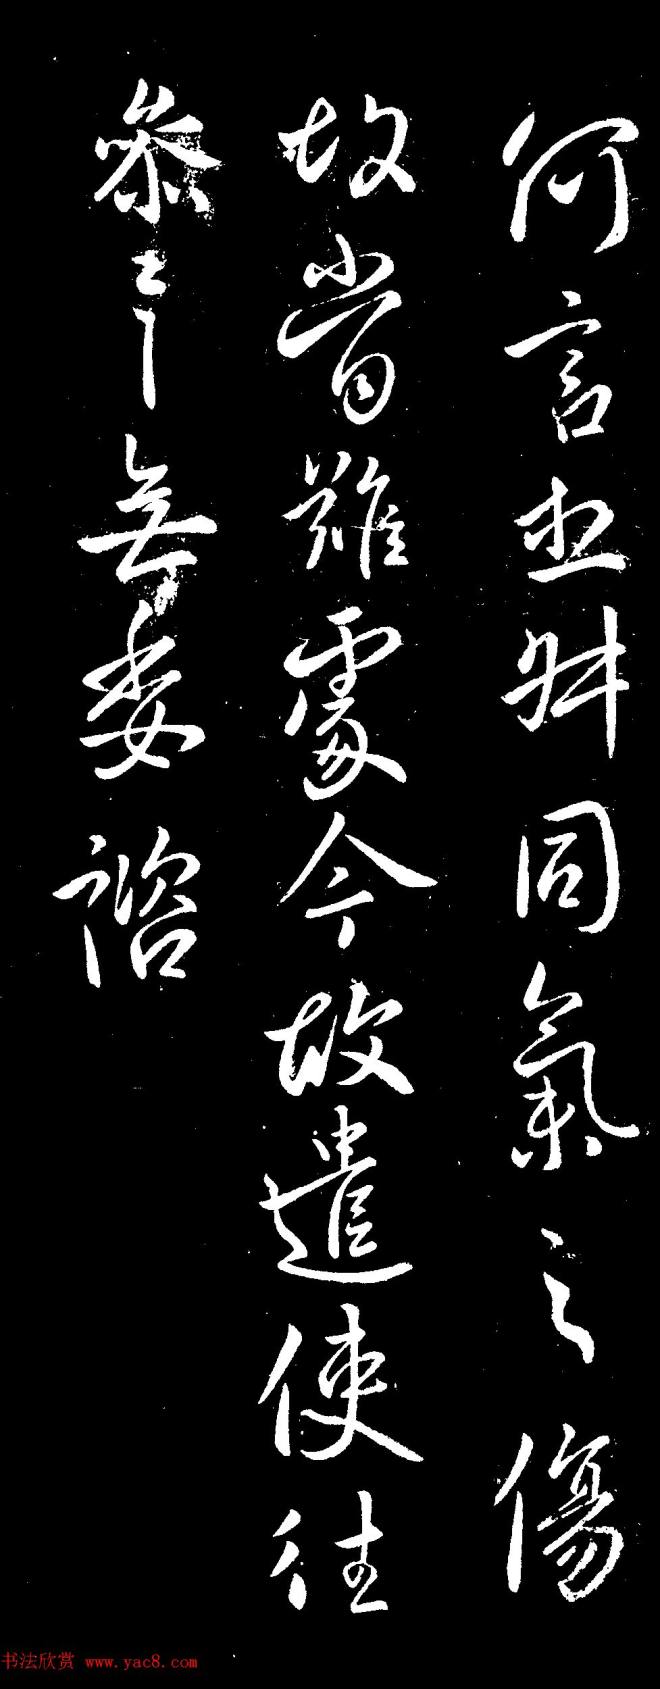 何言舛同氣之傷
故當難處今故遣使往
參無委諮
书法欣赏 www.yac8.com